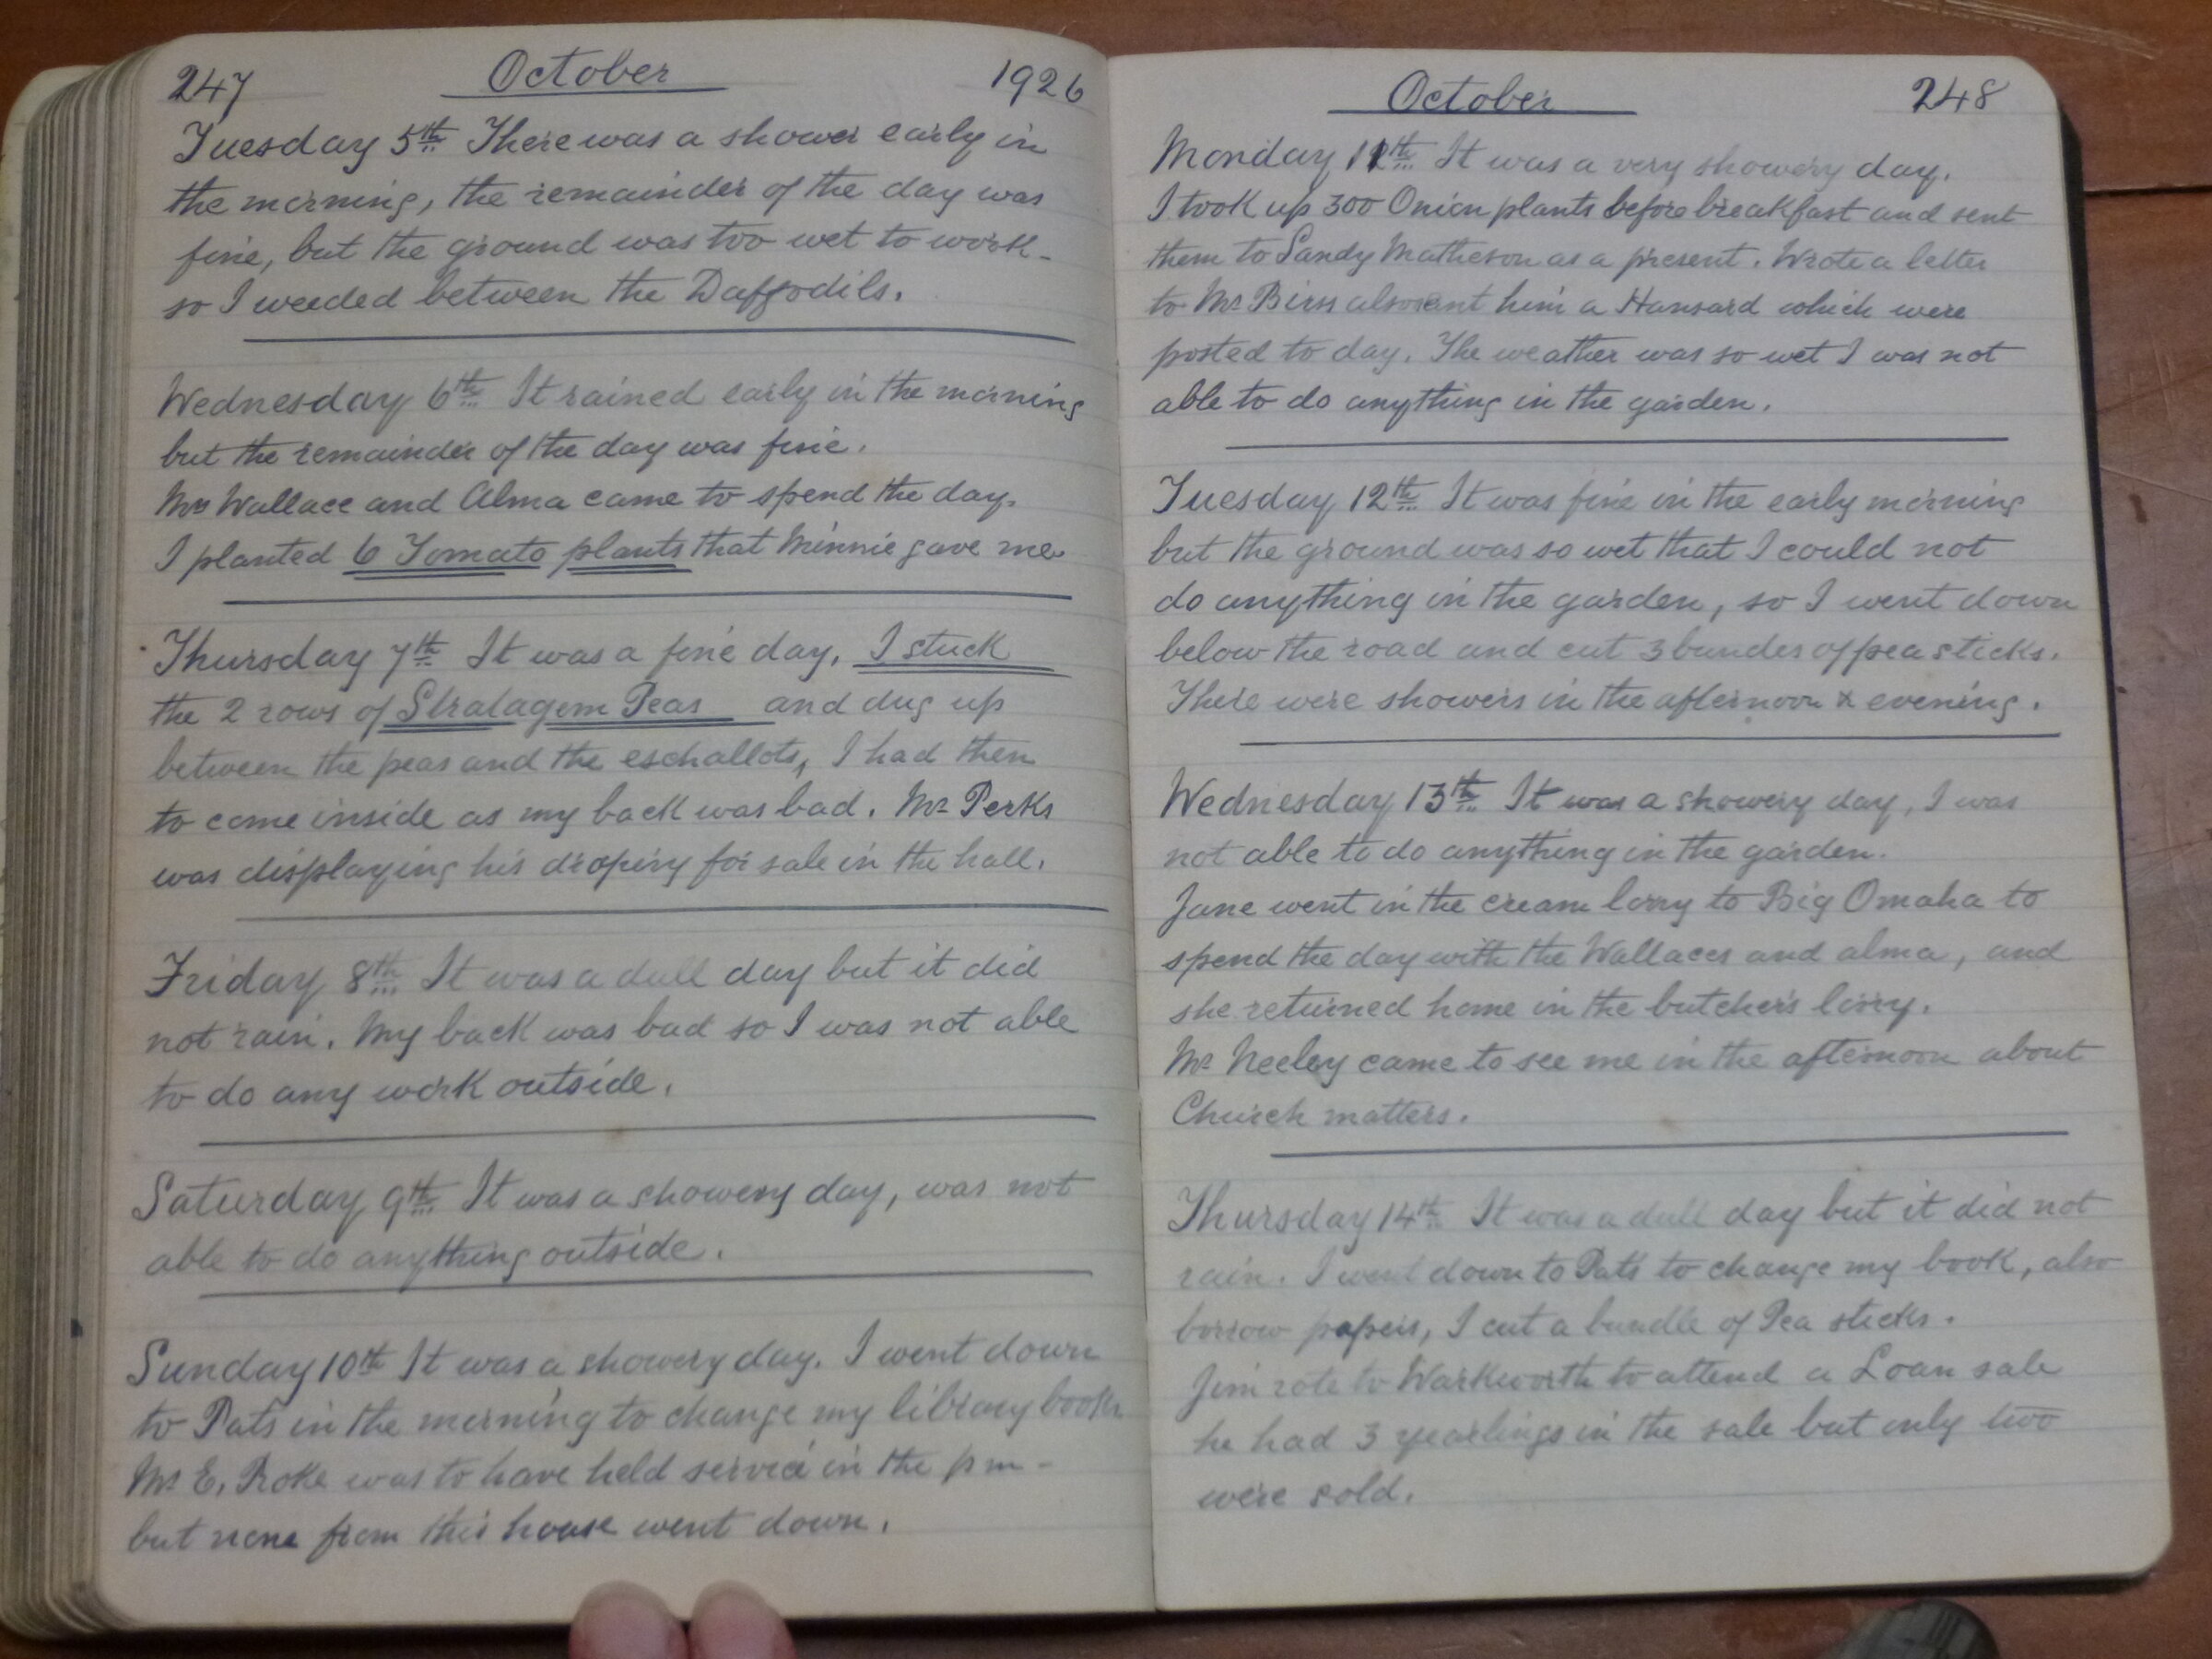 247 October 1926
Tuesday 5th There was a shower early in
the morning, the remainder of the day was
fine, but the ground was too wet to work-
so I weeded between the Daffodils.
Wednesday 6th It rained early in the morning
but the remainder of the day was fine.
Mrs Wallace and Alma came to spend the day.
I planted 6 Tomato plants that Minnie gave me
Thursday 7th It was a fine day, I stuck
the 2 rows of Stratagem Peas and dug up
between the peas and the eschallots, I had then
to come inside as my back was bad. Mr Perks
was displaying his drapery for sale in the hall.
Friday 8th It was a dull day but it did
not rain. My back was bad so I was not able
to do any work outside.
Saturday 9th It was a showery day, was not
able to do anything outside.
Sunday 10th It was a showery day. I went down
to Pats in the morning to change my library book
Mr E. Roke was to have held service in the pm-
but none from this house went down.
October 248
Monday 11th It was a very showery day.
I took up 300 Onion plants before breakfast and sent
them to Sandy Matheson as a present. Wrote a letter
to Mr Birss also sent him a Hansard which were
posted to day. The weather was so wet I was not
able to do anything in the garden.
Tuesday 12th It was fine in the early morning
but the ground was so wet that I could not
do anything in the garden, so I went down
below the road and cut 3 bundes of pea sticks.
There were showers in the afternoon & evening.
Wednesday 13th It was a showery day, I was
not able to do anything in the garden.
Jane went in the cream lorry to Big Omaha to
spend the day with the Wallaces and alma, and
she returned home in the butchers lorry.
Mr Neeley came to see me in the afternoon about
Church matters.
Thursday 14th It was a dull day but it did not
rain. I went down to Pats to change my book, also
borrow papers, I cut a bundle of Pea sticks.
Jim rote to Warkworth to attend a Loan sale
he had 3 yearlings in the sale but only two
were sold.